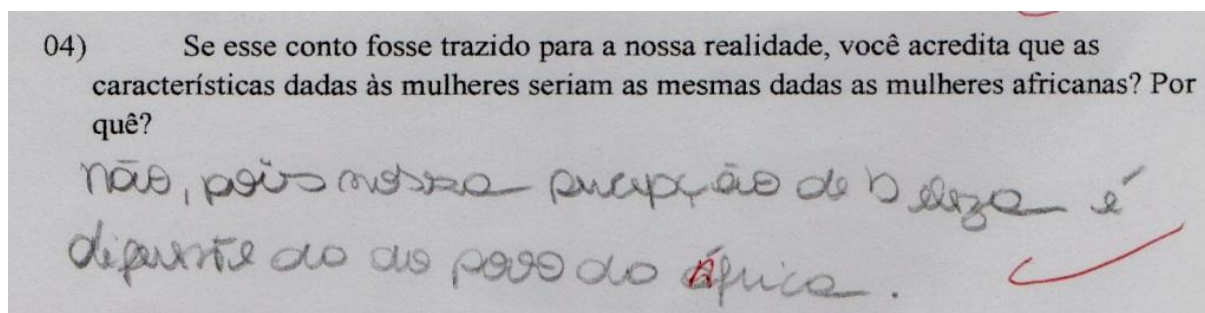 04) Se esse conto fosse trazido para a nossa realidade, você acredita que as
características dadas às mulheres seriam as mesmas dadas as mulheres africanas? Por
quê?
não, pois nossa percepção de beleza é
diferente da do povo da África.